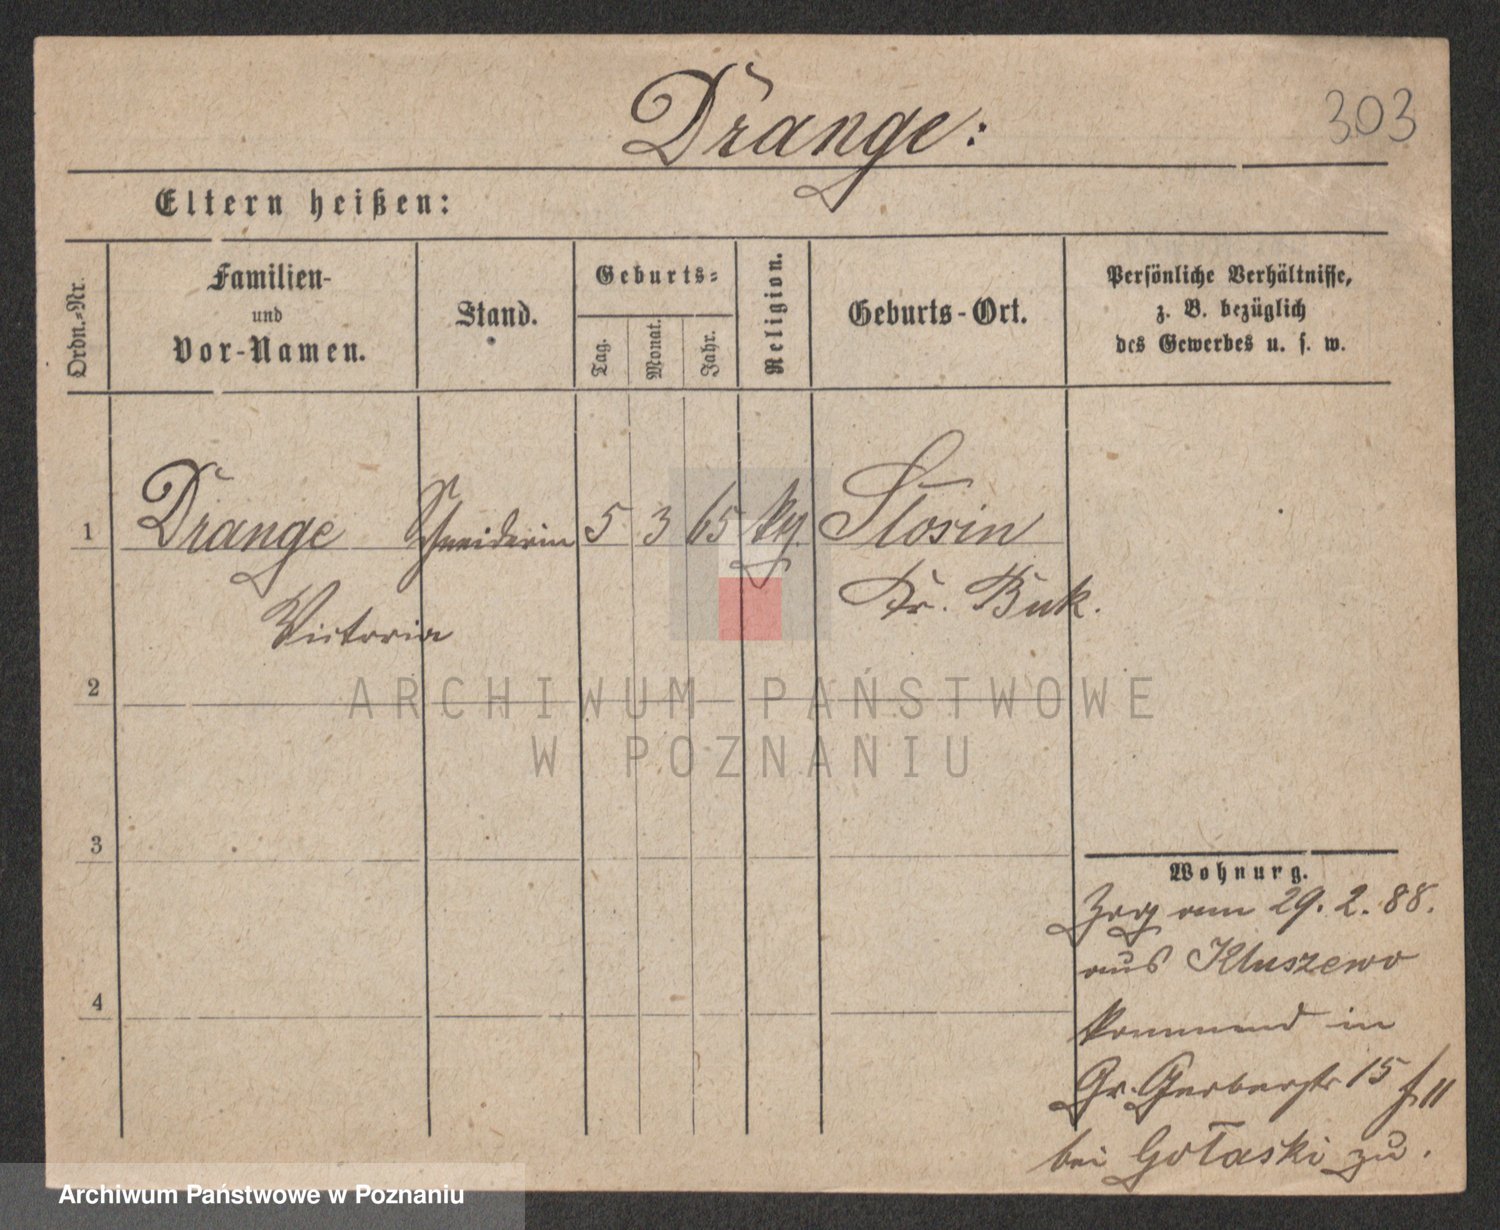 Drange:
303
Eltern heißen:
Ordn.-Nr.
Familien-
und
Vor-Namen.
Stand.
Geburts-
Tag.
Monat.
Jahr.
Religion.
Geburts-Ort.
Persönliche Verhältnisse,
z. B. bezüglich
des Gewerbes u. s. w.
1 Drange Schneiderin 5 3 65 kg. Słosin
Victoria Kr. Buk.
2
ARCHIWUM PAŃSTWOWE
W POZNANIU
3
Wohnung.
Zzg am 29. 2. 88.
aus Kluszewo
4
kommend in
Gr. Gerberstr 15
bei Gołaski zu.
Archiwum Państwowe w Poznaniu